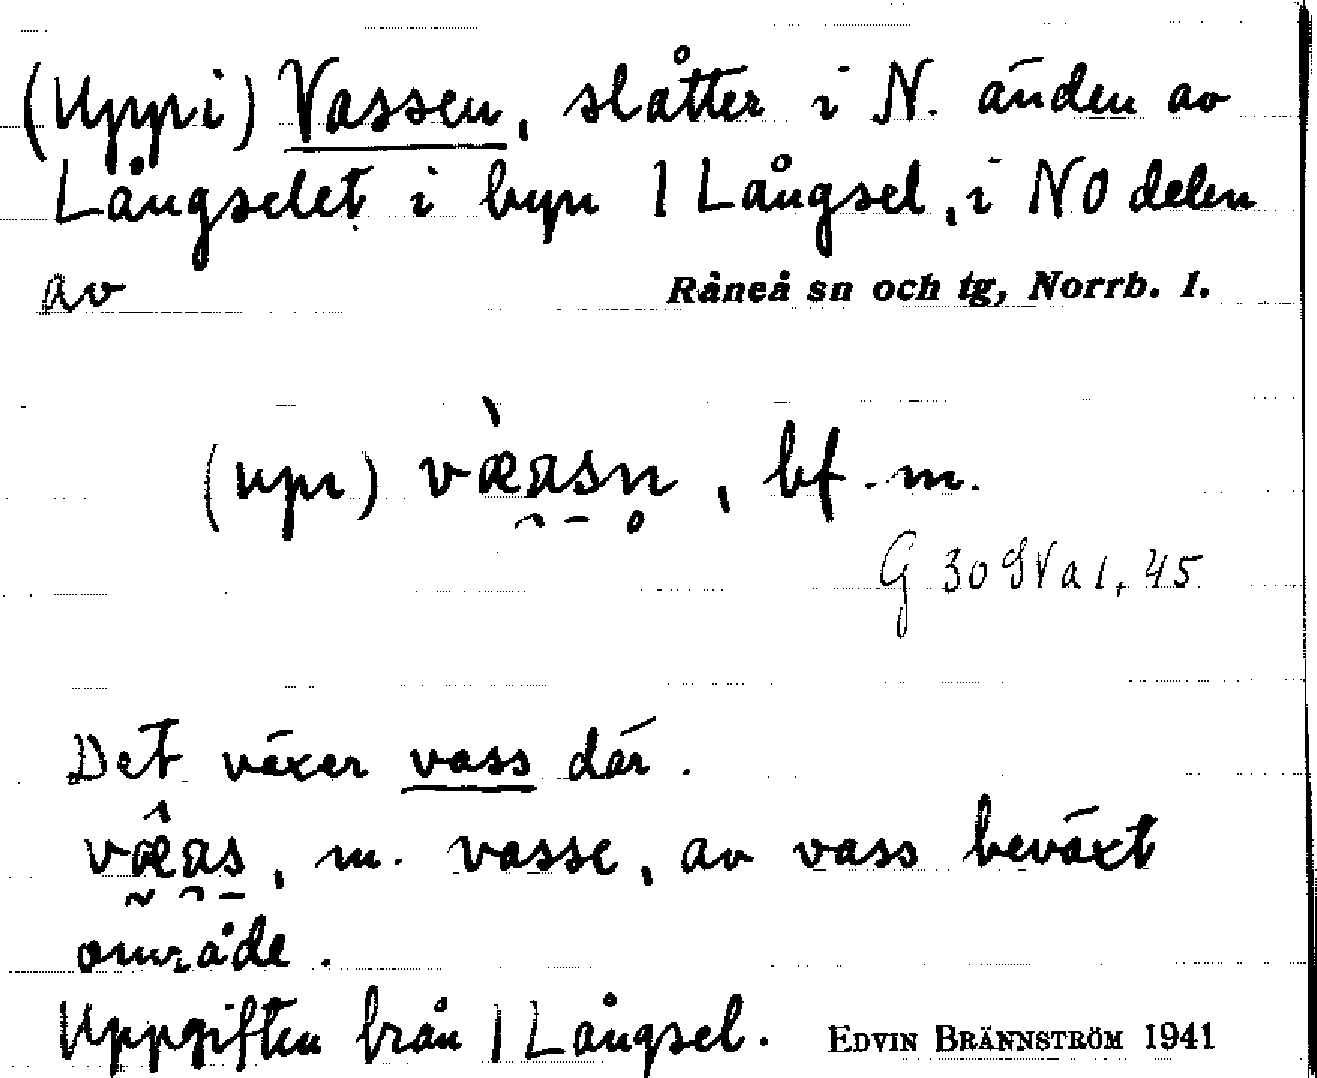 (Uppi) Vassen, slåtter i N. änden av
Långselet i byn 1 Långsel, i NO delen
av Råneå sn och tg, Norrb. l.
(upi) væ̀asn̥, bf. m.
G 30 SV a 1, 45
Det växer vass där.
væ̂as, m. vasse, av vass beväxt
område.
Uppgiften från 1 Långsel. EDVIN BRÄNNSTRÖM 1941